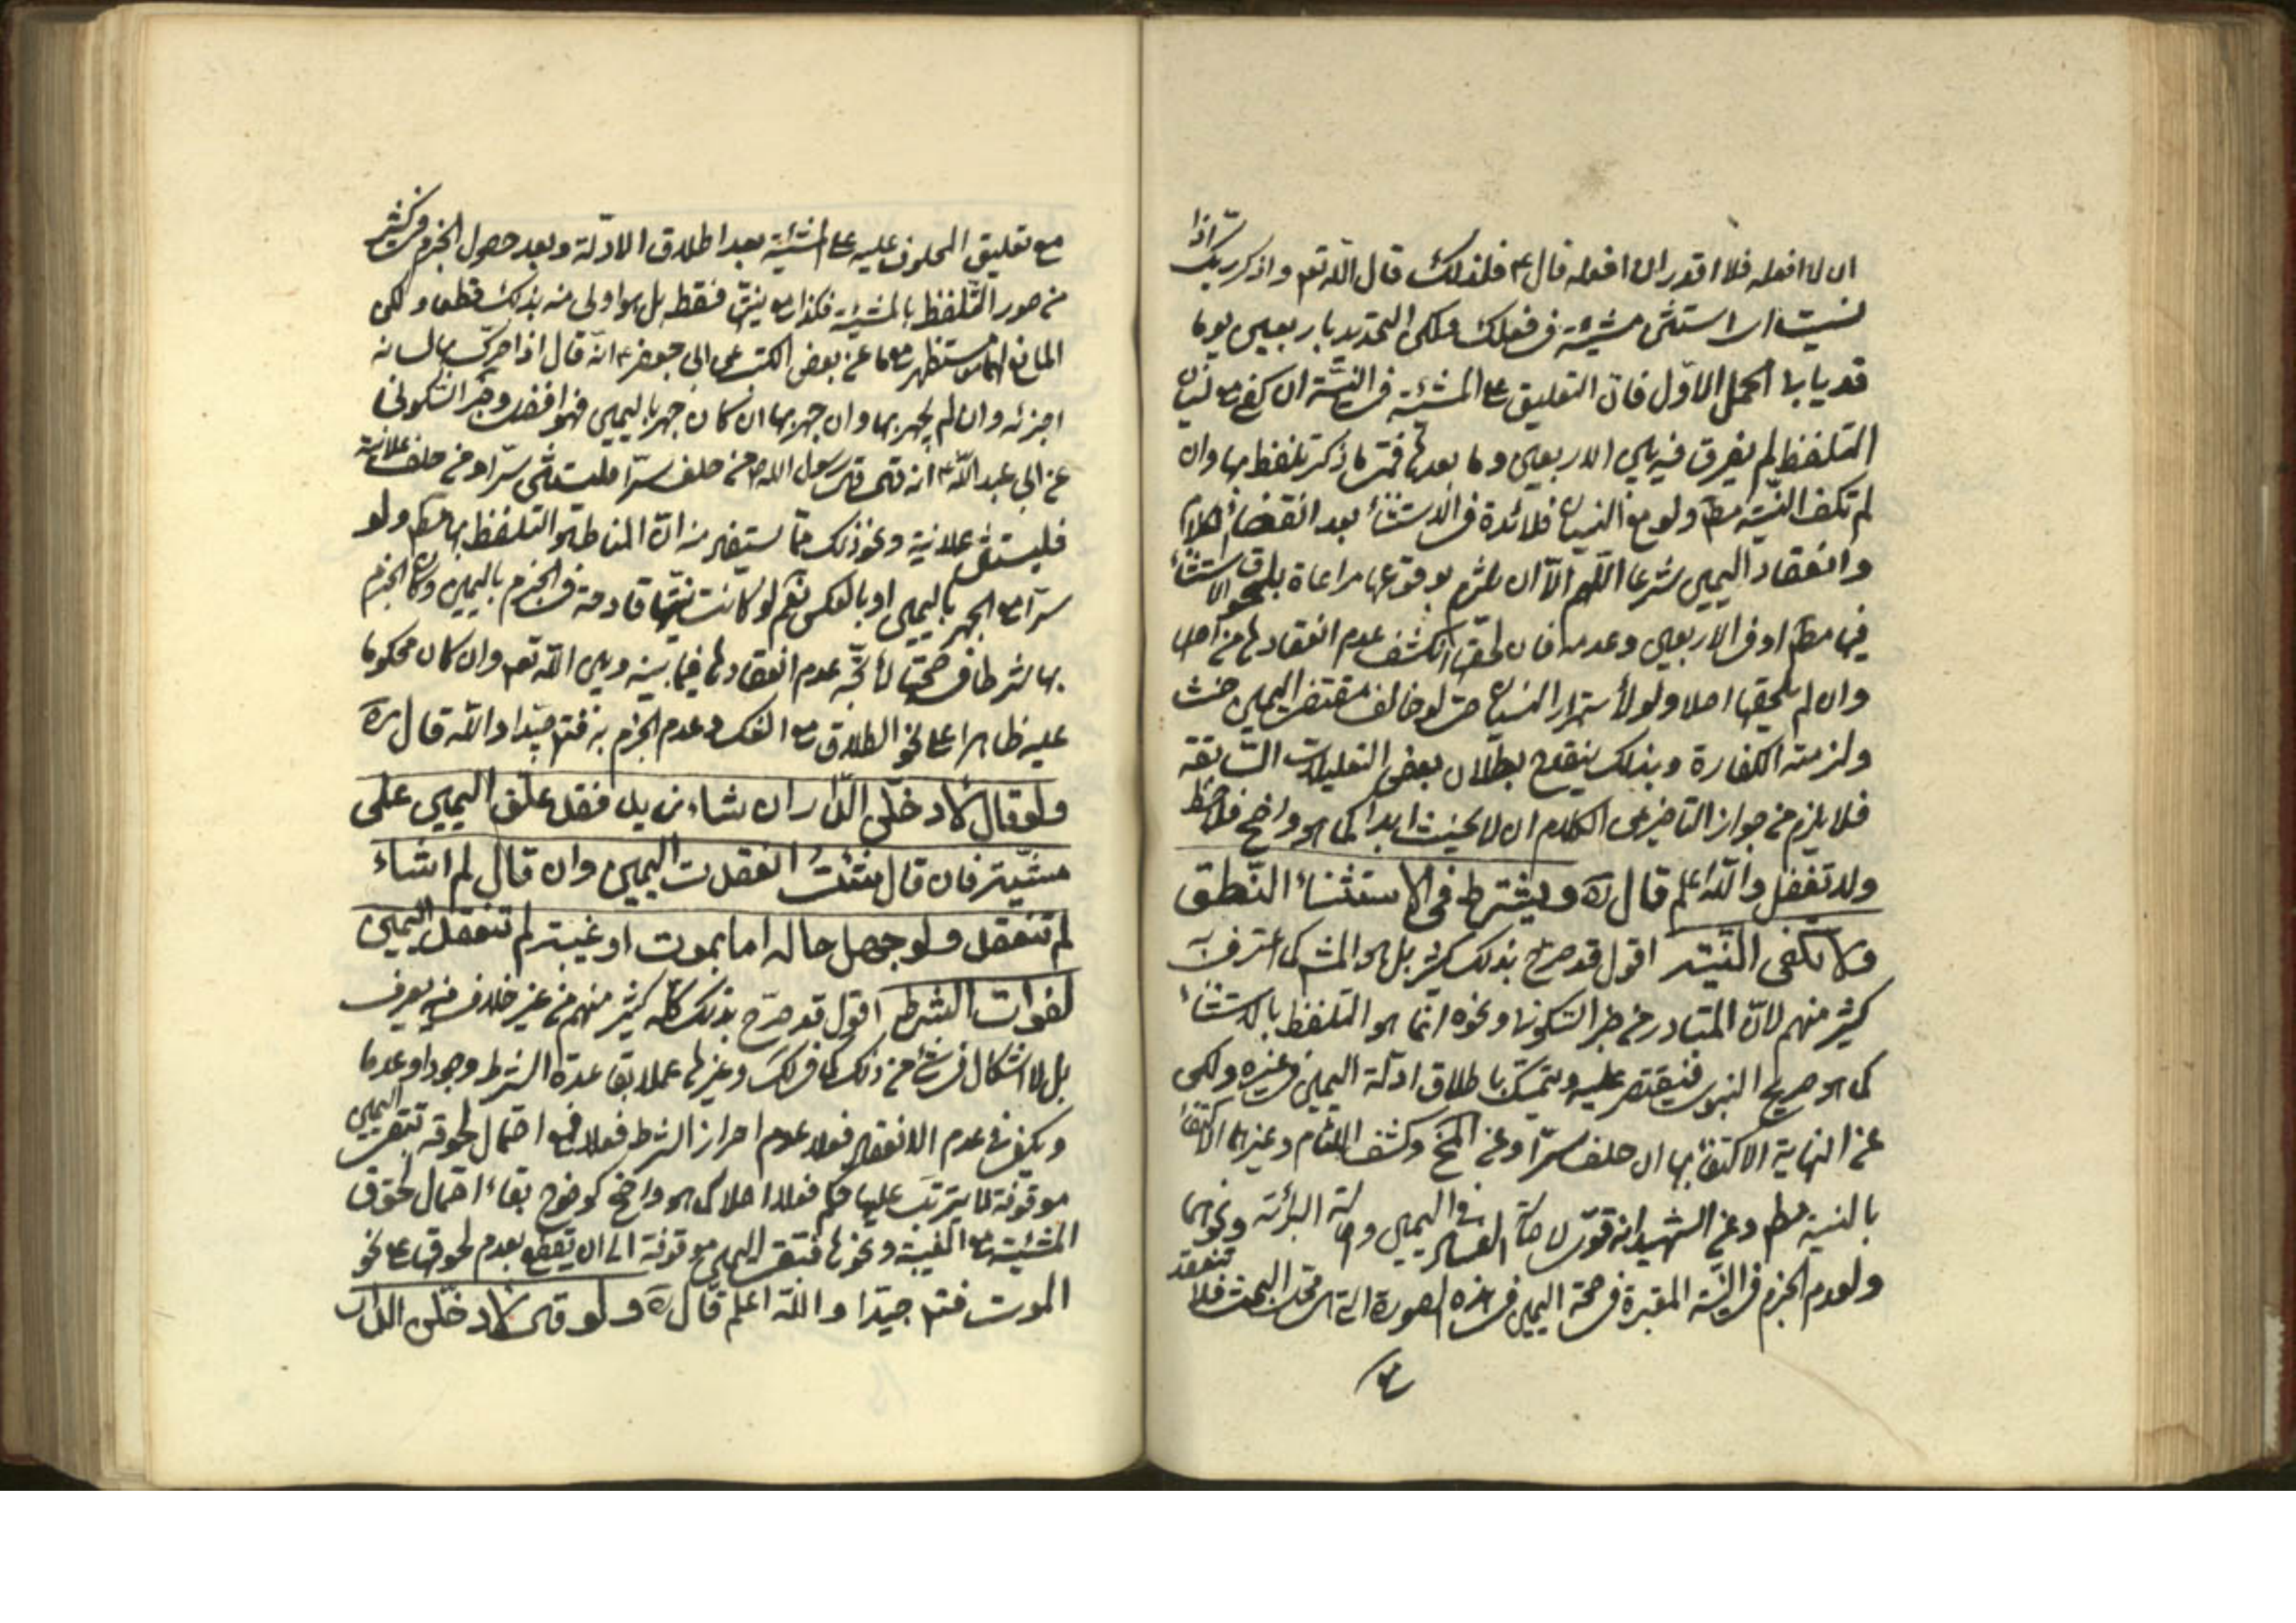 ان لا افعله فلا اقدر ان افعله قال ع فلذلك قال الله تعم واذكر ربك اذا
نسيت اى استثنى مشيته فى فعلك ولكن التحديد باربعين يوما
قد يابا الحمل الاول فان التعليق على المشية فى النية ان كفى مع نسيان
التلفظ لم يفرق فيه بين الاربعين وما بعدها فمتى ما ذكر تلفظ بها وان
لم تكف النية مطم ولو مع النسيان فلا فائدة فى الاستثناء بعد انقضاء الكلام
وانعقاد اليمين شرعا اللهم الا ان يلتزم بوقوعها مراعاة بلحوق الاستثناء
فيها مطم او فى الاربعين وعدمه فان لحقها انكشف عدم انعقادها من اصل
وان لم يلحقها اصلا ولو لاستمرار النسيان حتى لو خالف مقتضى اليمين حنث
ولزمته الكفارة وبذلك ينقدح بطلان بعض التعليلات السابقة
فلا يلزم من جواز التأخير عن الكلام ان لا يحنث ابدا كما هو واضح فلاحظ
ولا تغفل والله اعلم قال ره ويشترط فى الاستثناء النطق
ولا تكفى النية اقول قد صرح بذلك كثير بل هو المشـ كما اعترف به
كثير منهم لان المتبادر من خبر السكونى ونحوه انما هو التلفظ بالاستثناء
كما هو صريح النبوى فيقتصر عليه ويتمسك باطلاق ادلة اليمين فى غيره ولكن
عن النهاية الاكتفاء بها ان حلف سرا وعن المخ وكشف اللثام وغيرهما الاكتفاء
بالنية مطم وعن الشهيد انه قوى لاصالة البرائة ونحوهما
ولعدم الجزم فى النية المعتبرة فى صحة اليمين فى هذه الصورة التى هى محل البحث فلا تنعقد
مع تعليق المحلوف عليه على المشية بعد اطلاق الادلة وبعد حصول الجزم فى كثير
من صور التلفظ بالمشية فكذا مع نيتها فقط بل هو اولى منه بذلك قطعا ولكن
المانع عن بعض الكتب عن ابى جعفر ع انه قال اذا حرك بها لسانه
اجزئه وان لم يجهر بها وان جهر بها ان كان جهر باليمين فهو افضل وخبر السكونى
عن ابى عبد الله ع انه قال قال رسول الله ص من حلف سرا فليستثنى سرا ومن حلف علانية
فليستثن علانية ونحو ذلك مما يستفيد منه ان المناط هو التلفظ بها مطم ولو
سرا مع الجهر باليمين او بالعكس نعم لو كانت نيتها قادحة فى الجزم باليمين وكان الجزم
بها شرطا فى صحتها لاتجه عدم انعقادها فيما بينه وبين الله تعم وان كان محكوما
عليه ظاهرا على نحو الطلاق مع الفك وعدم الجزم به فتم جيدا والله قال ره
ولو قال لادخلن الدار ان شاء زيد فقد علق اليمين على
مشيته فان قال شئت انعقدت اليمين وان قال لم اشاء
لم تنعقد ولو جهل حاله اما بموت او غيبته لم تنعقد اليمين
لفوات الشرط اقول قد صرح بذلك كله كثير منهم من غير خلاف فيه يعرف
بل لا اشكال فى شئ من ذلك كما فى لك وغيرها عملا بقاعدة الشرط وجودا وعدما
ويكفى فى عدم الانعقاد فعلا عدم احراز الشرط فعلا فمع احتمال لحوقه تبقى اليمين
موقوفة لا يترتب عليها حكم فعلا اصلا كما هو واضح كوضوح بقاء احتمال لحوق
المشية مع الغيبة ونحوها فتبقى اليمين موقوفة الى ان يقطع بعدم لحوقها على نحو
الموت فتم جيدا والله اعلم قال ره ولو قال لادخلن الدار